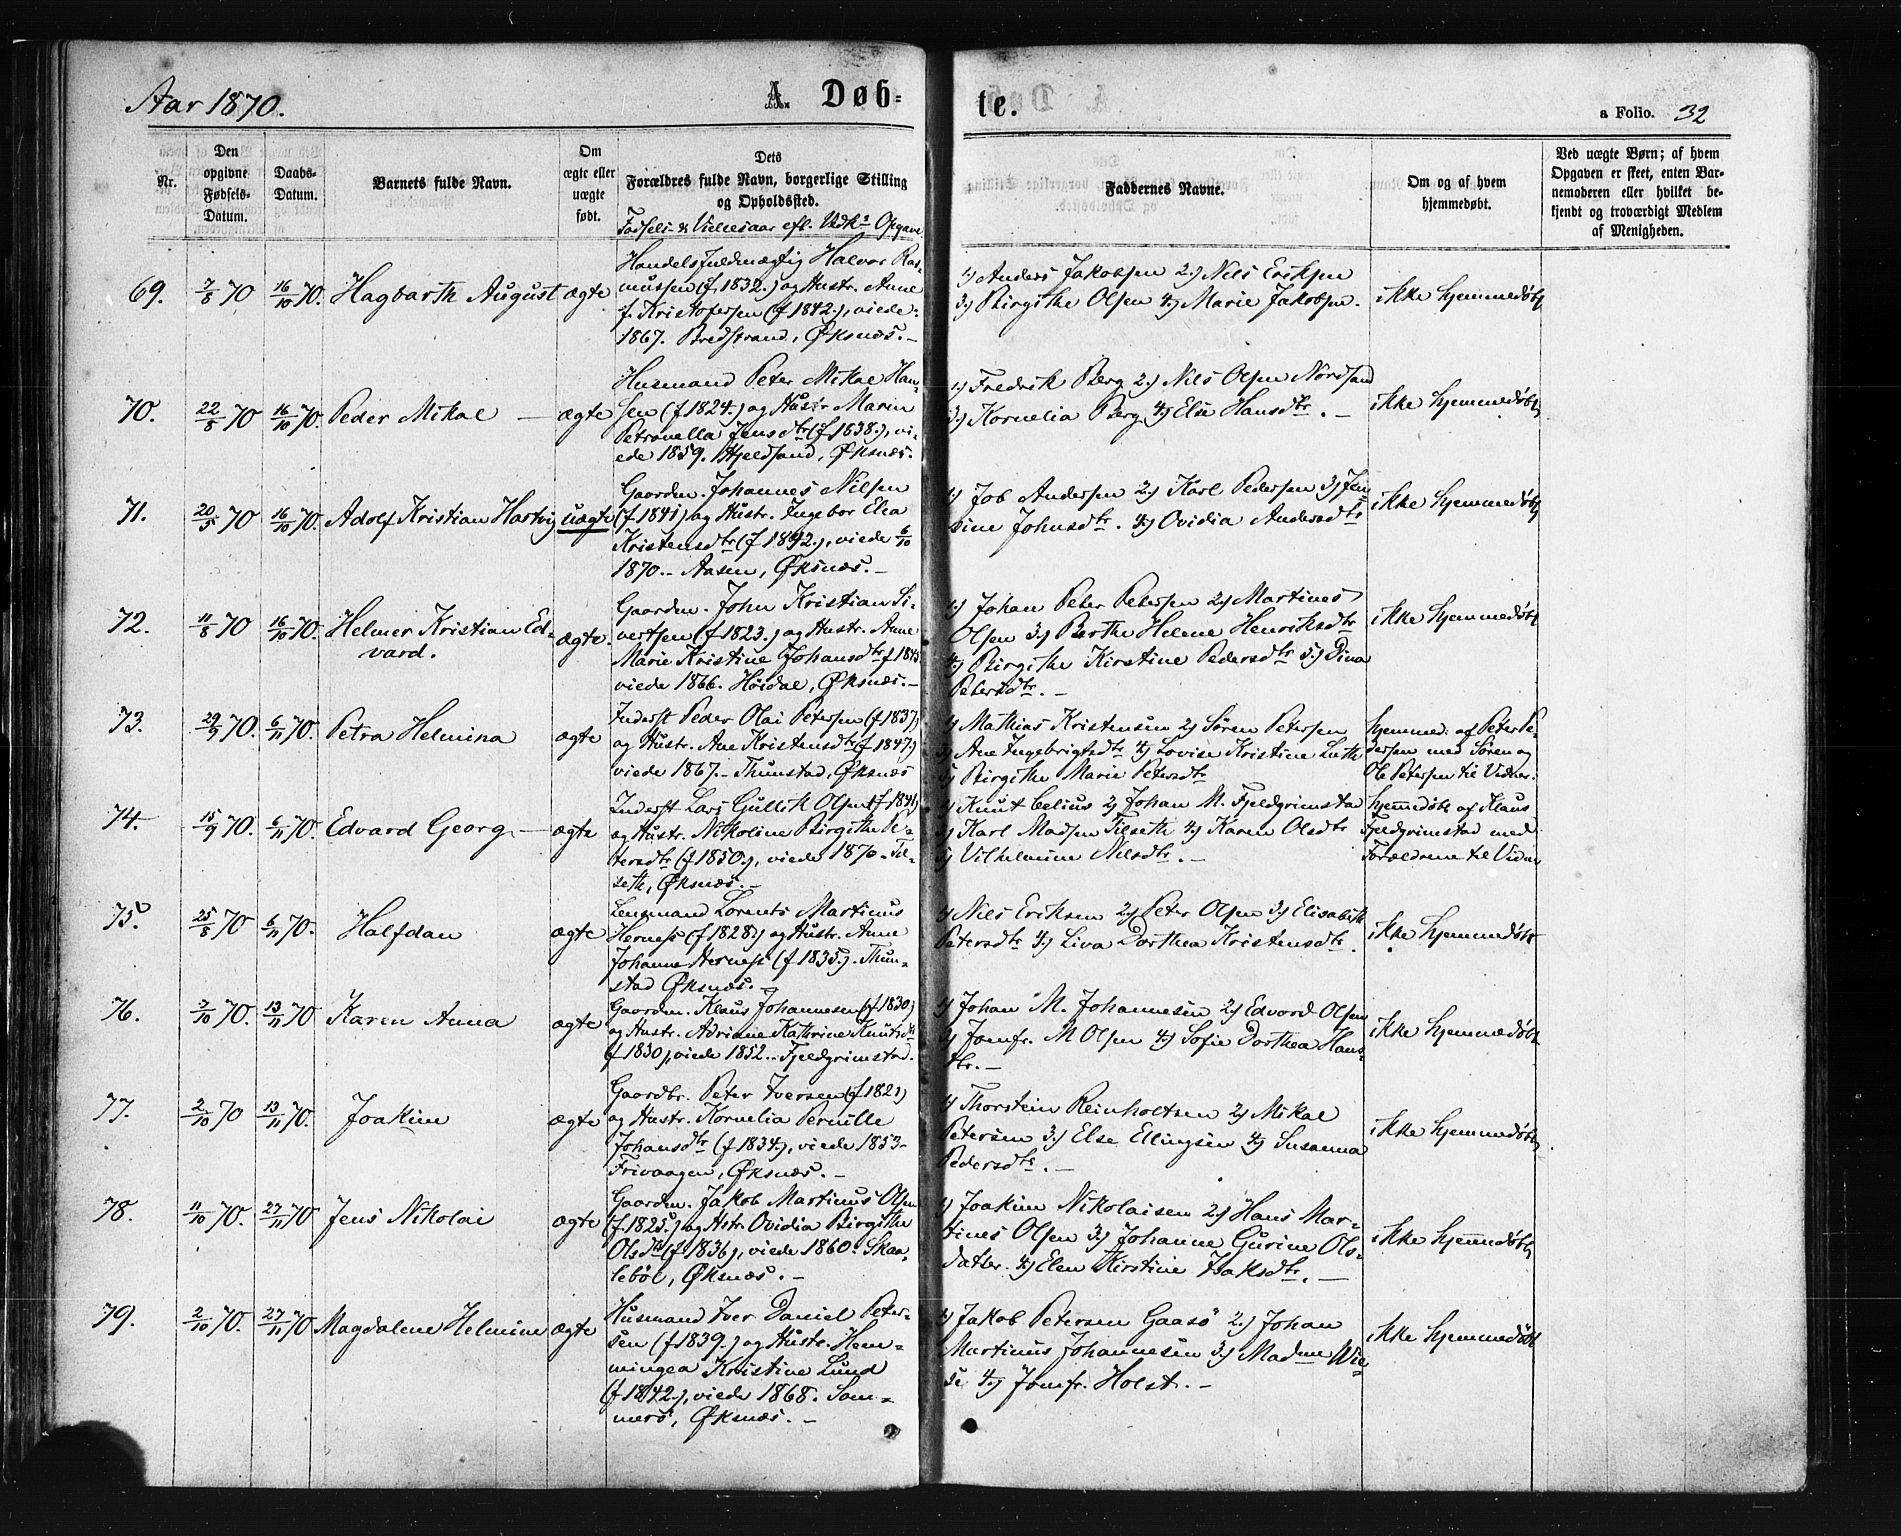 Aar 1870.
A Døb-
te.
a Folio. 32
Nr.
Den opgivne Fødsels-Datum.
Daabs-Datum.
Barnets fulde Navn.
Om ægte eller uægte født.
Dets
Forældres fulde Navn, borgerlige Stilling
og Opholdssted.
Fødsels- & Vielsesaar efl. Vedk.s Opgave
Faddernes Navne.
Om og af hvem
hjemmedøbt.
Ved uægte Børn; af hvem
Opgaven er skeet, enten Bar-
nemoderen eller hvilket be-
kjendt og troværdigt Medlem
af Menigheden.
69. 7/8 70 16/10 70. Hagbarth August ægte
Handelsfuldmægtig Halvor Ras-
mussen (f 1832.) og Hustr. Anne
f. Kristofersen (f 1842.), viede
1867. Bredstrand, Øksnæs. –
1) Anders Jakobsen 2.) Nils Eriksen
3.) Birgithe Olsen 4.) Marie Jakobsen.
ikke hjemmedøbt
70. 22/8 70 16/10 70. Peder Mikal – ægte
Husmand Peter Mikal Han-
sen (f 1824.) og Hustr Maren
Petronella Jensdtr (f 1838.), vi-
ede 1859. Skjeldsand, Øksnæs.
1.) Fredrik Berg 2.) Nils Olsen Nordsand
3.) Kornelia Berg 4.) Else Hansdtr. –
ikke hjemmedøbt
71. 20/5 70 16/10 70. Adolf Kristian Hartvig uægte
Gaardm. Johannes Nilsen
(f 1841) og Hustr. Ingebor Elea
Kristensdtr (f 1842.), viede 6/10
1870. – Aasen, Øksnæs. –
1.) Job Andersen 2.) Karl Pedersen 3.) Jen-
sine Johnsdtr. 4.) Ovidia Andersdtr
ikke hjemmedøbt
72. 11/8 70 16/10 70. Helmer Kristian Ed-
vard. ægte.
Gaardm. John Kristian Si-
vertsen (f 1823.) og Hustr. Anne
Marie Kristine Johansdtr f 1845
viede 1866. Høidal, Øksnæs. –
1.) Johan Peter Petersen 2.) Martines
Olsen 3.) Berthe Helene Henriksdtr
4.) Birgithe Kirstine Pedersdtr 5.) Dina
Petersdtr. –
ikke hjemmedøbt
73. 29/9 70. 6/11 70. Petra Helmina ægte
Inderst Peder Olai Petersen (f 1837)
og Hustr. Ane Kristensdtr (f 1847.)
viede 1867. – Thunstad, Øksnæs
1) Mathias Kristensen 2) Søren Petersen
3) Ane Ingebrigtsdtr 4.) Lovise Kristine Luth
5) Birgithe Marie Petersdtr
hjemmed. af Peter Pe-
dersen med Søren og
Ole Petersen til Vidner.
74. 15/9 70. 6/11 70. Edvard Georg. – ægte
Inderst Lars Gullik Olsen (f 1841)
og Hustr. Nikoline Birgithe Pe-
tersdtr (f 1850.), viede 1870. Til-
seth, Øksnæs. –
1) Knut Celius 2) Johan M. Fjeldgrimstad
3) Karl Madsen Tilseth 4.) Karen Olsdtr
5) Vilhelmine Nilsdtr. –
hjemmedøbt af Klaus
Fjeldgrimstad med
Forældrene til Vidne
75. 25/8 70 6/11 70. Halfdan ægte
Lensmand Lorents Martinus
Herness (f 1828.) og Hustr. Anne
Johanne Herness (f 1835.). Thun-
stad Øksnæs. –
1) Nils Eriksen 2.) Peter Olsen 3.) Elisabeth
Petersdtr 4.) Liva Dorthea Kristensdtr.
ikke hjemmedøbt
76. 7/10 70. 13/11 70 Karen Anna ægte
Gaardm. Klaus Johannesen (f 1830.)
og Hustr. Adriane Kathrine Knutsdtr
(f 1830), viede 1852. – Fjeldgrimstad.
1) Johan M. Johannesen 2.) Edvard Olsen
3) Jomfr. M Olsen 4.) Sofie Dorthea Hans-
dtr. –
ikke hjemmedøbt
77. 2/10 70 13/11 70. Joakim ægte
Gaardbr. Peter Iversen (f 1821)
og Hustr. Kornelia Pernille
Johansdtr (f 1834), viede 1853 –
Frivaagen, Øksnæs. –
1) Thorstein Reinholtsen 2.) Mikal
Petersen 3.) Else Ellingsen 4.) Susanna
Pedersdtr. –
ikke hjemmedøbt
78. 11/10 70. 27/11 70 Jens Nikolai ægte
Gaardm. Jakob Martinus Olsen
(f 1825.) og Hstr. Ovidia Birgithe
Olsdtr (f 1836), viede 1860. Skaa-
lebøl, Øksnæs. –
1) Joakim Nikolaisen 2.) Hans Mar-
tines Olsen 3.) Johanne Gurine Ols-
datter. 4.) Elen Kirstine Isaksdtr. –
ikke hjemmedøbt
79. 2/10 70. 27/11 70 Magdalene Helmine ægte
Husmand Iver Daniel Peter-
sen (f 1839.) og Hustr. Hem-
mingea Kristine Lund
(f 1842.), viede 1868. Som-
merø, Øksnæs. –
1) Jakob Petersen Gaasø 2.) Johan
Martinus Johannesen 3.) Madme Wie-
se 4.) Jomfr. Holst. –
ikke hjemmedøbt